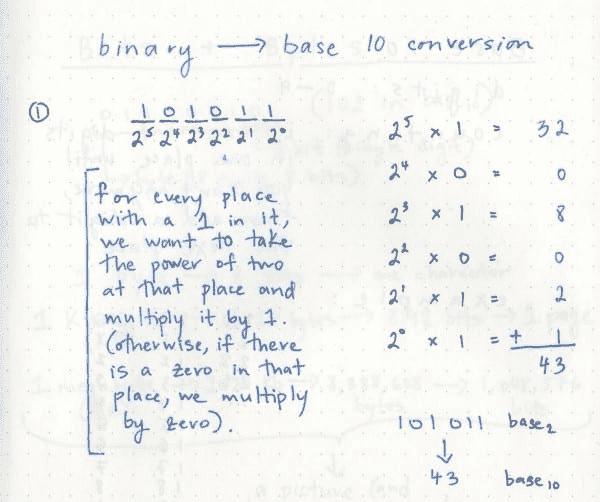 binary → base 10 conversion
① 1 0 1 0 1 1
2⁵ 2⁴ 2³ 2² 2¹ 2⁰
for every place
with a 1 in it,
we want to take
the power of two
at that place and
multiply it by 1.
(otherwise, if there
is a zero in that
place, we multiply
by zero).
2⁵ x 1 = 32
2⁴ x 0 = 0
2³ x 1 = 8
2² x 0 = 0
2¹ x 1 = 2
2⁰ x 1 = + 1
43
101011 base₂
↓
43 base₁₀